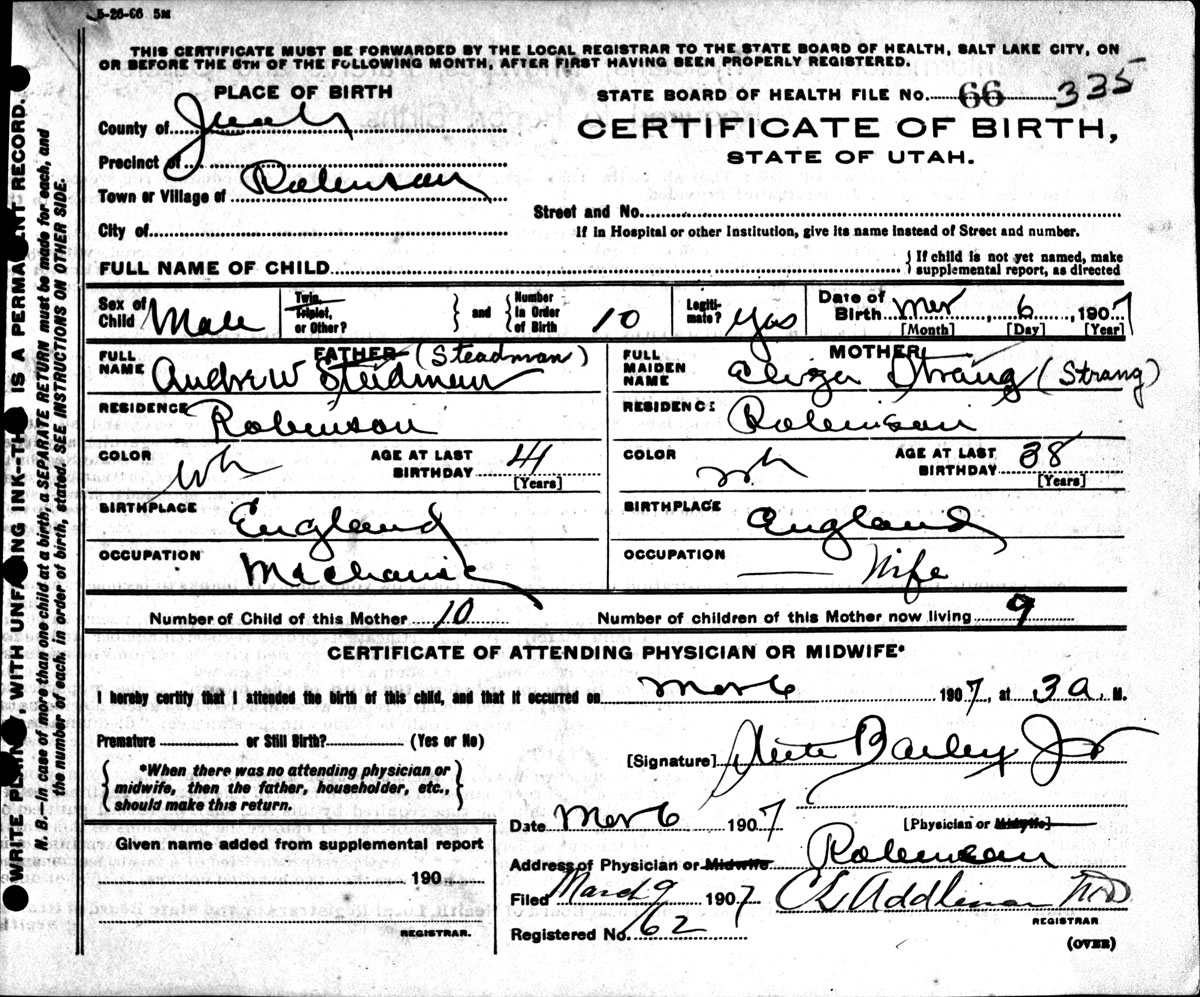 5-26-06 5M
THIS CERTIFICATE MUST BE FORWARDED BY THE LOCAL REGISTRAR TO THE STATE BOARD OF HEALTH, SALT LAKE CITY, ON
OR BEFORE THE 5TH OF THE FOLLOWING MONTH, AFTER FIRST HAVING BEEN PROPERLY REGISTERED.
PLACE OF BIRTH
County of Juab
Precinct of
Town or Village of Robinson
City of
STATE BOARD OF HEALTH FILE NO. 66 335
CERTIFICATE OF BIRTH,
STATE OF UTAH.
Street and No.
If in Hospital or other Institution, give its name instead of Street and number.
FULL NAME OF CHILD
{ If child is not yet named, make
supplemental report, as directed
Sex of Child Male
Twin, Triplet, or Other? } and { Number In Order of Birth 10
Legitimate? Yes
Date of Birth Mar 6, 1907
[Month] [Day] [Year]
FATHER
FULL NAME Andrew Steidman (Steadman)
RESIDENCE Robinson
COLOR Wh AGE AT LAST BIRTHDAY 41
[Years]
BIRTHPLACE England
OCCUPATION Mechanic
MOTHER
FULL MAIDEN NAME Eliza Strang (Strang)
RESIDENCE Robinson
COLOR Wh AGE AT LAST BIRTHDAY 38
[Years]
BIRTHPLACE England
OCCUPATION Wife
Number of Child of this Mother 10 Number of children of this Mother now living 9
CERTIFICATE OF ATTENDING PHYSICIAN OR MIDWIFE*
I hereby certify that I attended the birth of this child, and that it occurred on Mar 6 1907, at 3 a. M.
Premature or Still Birth? (Yes or No)
{ *When there was no attending physician or
midwife, then the father, householder, etc.,
should make this return. }
[Signature] Bailey Jr
[Physician or Midwife]
Date Mar 6 1907
Address of Physician or Midwife Robinson
Filed March 9 1907 Addleman MD
REGISTRAR
Registered No. 62
(OVER)
Given name added from supplemental report
190
REGISTRAR.
WRITE PLAINLY WITH UNFADING INK--THIS IS A PERMANENT RECORD.
N. B.--In case of more than one child at a birth, a SEPARATE RETURN must be made for each, and
the number of each, in order of birth, stated. SEE INSTRUCTIONS ON OTHER SIDE.